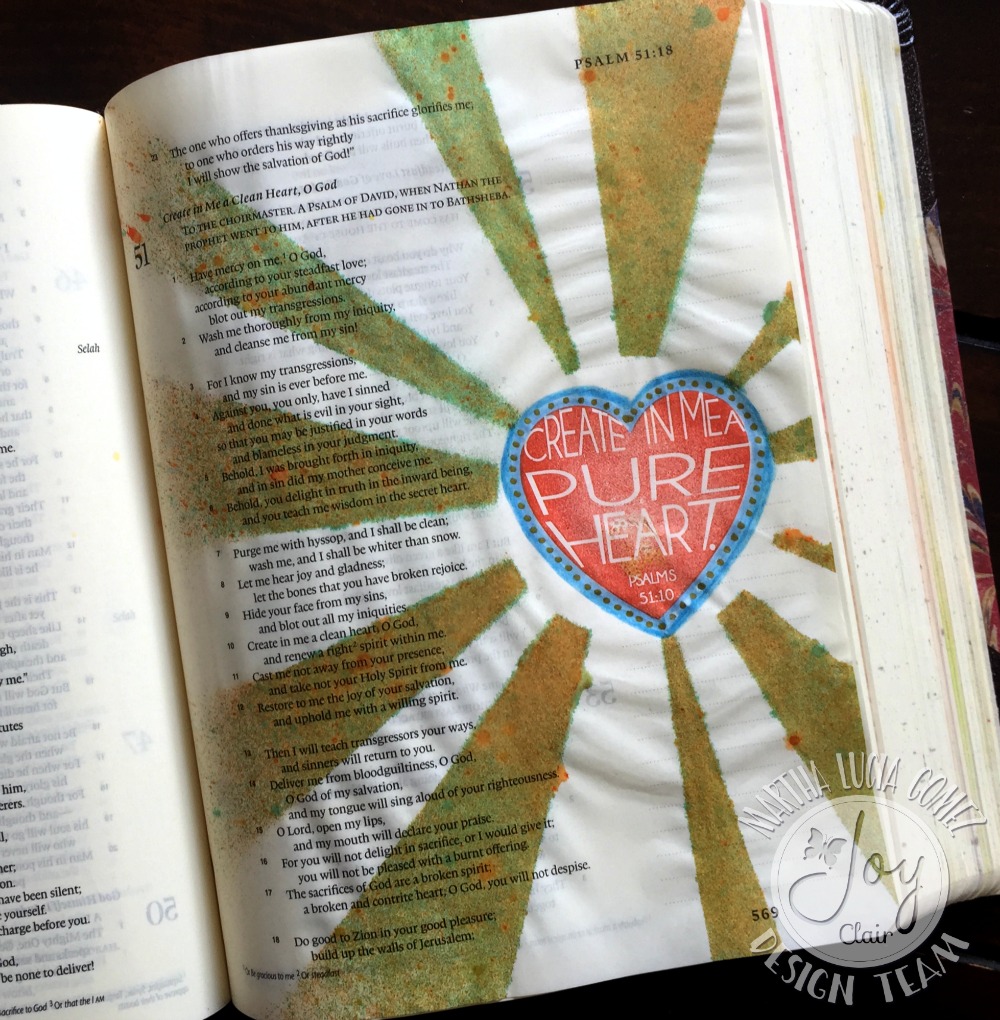 Selah
me.
gh,
y me."
tutes
him,
erers.
ner;
on.
have been silent;
yourself.
charge before you.
God,
be none to deliver!
sacrifice to God 3 Or that the I AM
PSALM 51:18
23 The one who offers thanksgiving as his sacrifice glorifies me;
to one who orders his way rightly
I will show the salvation of God!"
Create in Me a Clean Heart, O God
TO THE CHOIRMASTER. A PSALM OF DAVID, WHEN NATHAN THE
PROPHET WENT TO HIM, AFTER HE HAD GONE IN TO BATHSHEBA.
51
1 Have mercy on me,1 O God,
according to your steadfast love;
according to your abundant mercy
blot out my transgressions.
2 Wash me thoroughly from my iniquity,
and cleanse me from my sin!
3 For I know my transgressions,
and my sin is ever before me.
Against you, you only, have I sinned
and done what is evil in your sight,
so that you may be justified in your words
and blameless in your judgment.
5 Behold, I was brought forth in iniquity,
and in sin did my mother conceive me.
6 Behold, you delight in truth in the inward being,
and you teach me wisdom in the secret heart.
7 Purge me with hyssop, and I shall be clean;
wash me, and I shall be whiter than snow.
8 Let me hear joy and gladness;
let the bones that you have broken rejoice.
9 Hide your face from my sins,
and blot out all my iniquities.
10 Create in me a clean heart, O God,
and renew a right2 spirit within me.
11 Cast me not away from your presence,
and take not your Holy Spirit from me.
12 Restore to me the joy of your salvation,
and uphold me with a willing spirit.
13 Then I will teach transgressors your ways,
and sinners will return to you.
14 Deliver me from bloodguiltiness, O God,
O God of my salvation,
and my tongue will sing aloud of your righteousness.
15 O Lord, open my lips,
and my mouth will declare your praise.
16 For you will not delight in sacrifice, or I would give it;
you will not be pleased with a burnt offering.
17 The sacrifices of God are a broken spirit;
a broken and contrite heart, O God, you will not despise.
18 Do good to Zion in your good pleasure;
build up the walls of Jerusalem;
1 Or Be gracious to me 2 Or steadfast
569
CREATE IN ME A
PURE
HEART.
PSALMS
51:10
MARTHA LUCIA GOMEZ
Joy
Clair
DESIGN TEAM